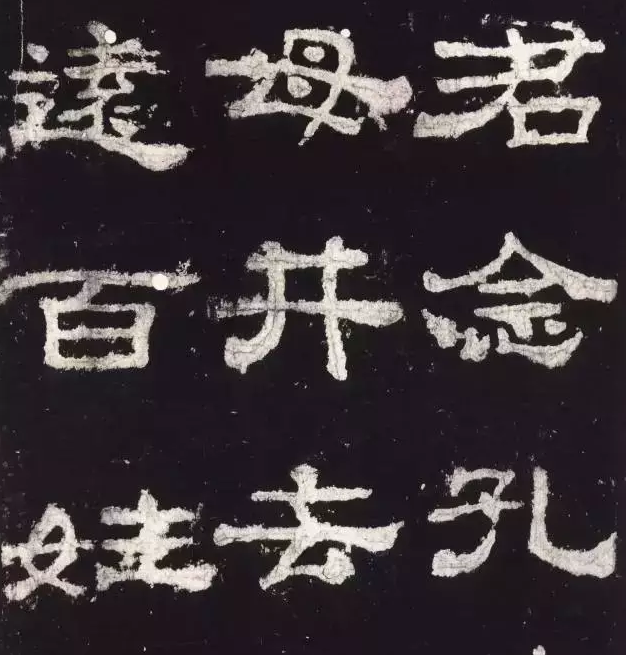 君念孔
母井去
遠百姓